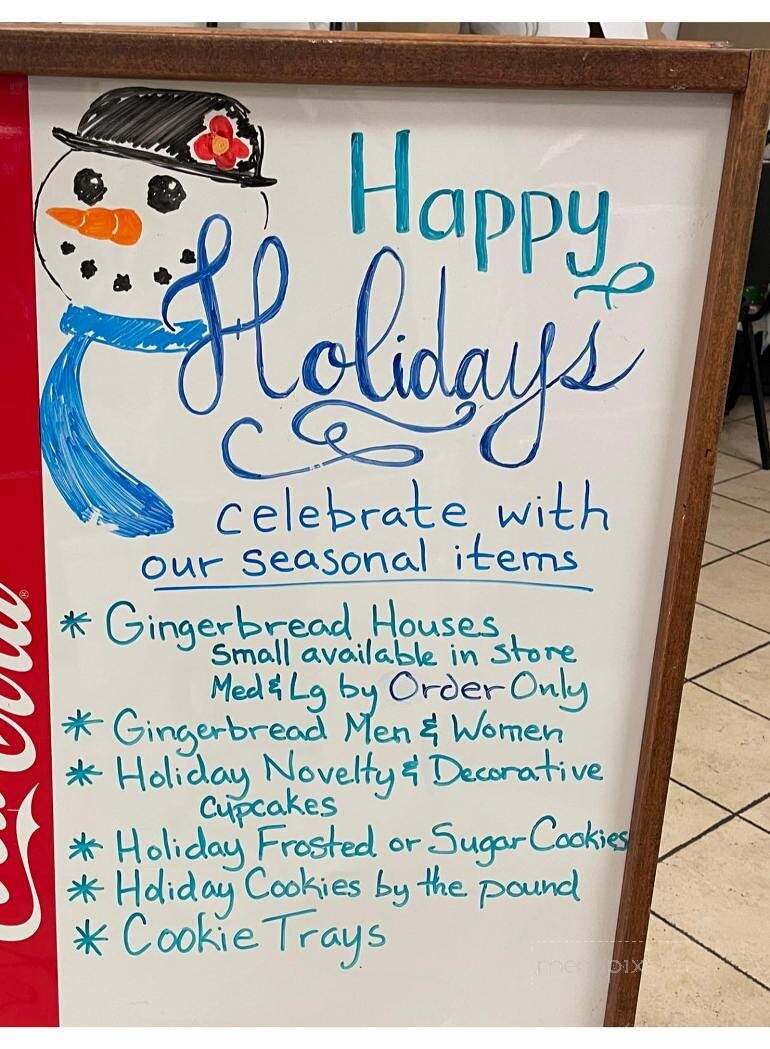 Happy
Holidays
celebrate with
our seasonal items
* Gingerbread Houses
Small available in store
Med & Lg by Order Only
* Gingerbread Men & Women
* Holiday Novelty & Decorative
Cupcakes
* Holiday Frosted or Sugar Cookies
* Holiday Cookies by the pound
* Cookie Trays